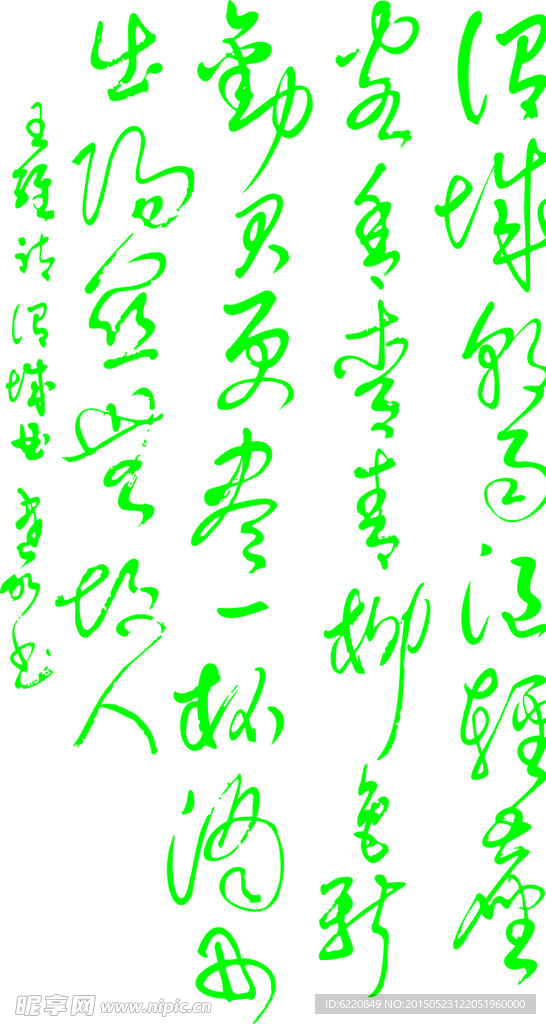 渭城朝雨浥輕塵
客舍青青柳色新
勸君更盡一杯酒西
出陽關無故人
王維詩渭城曲 書
昵享网 www.nipic.cn
ID:6220849 NO:20150523122051960000